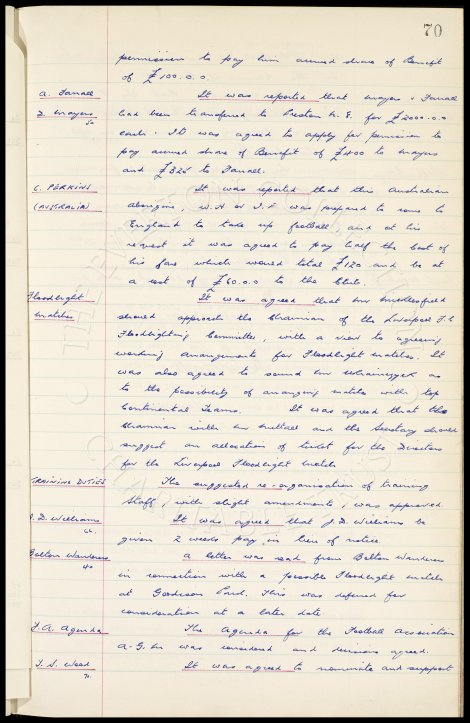 70
permission to pay him accrued share of Benefit
of £100.0.0
A. Farrall It was reported that Mayers & Farrall
D. Mayers had been transferred to Preston N. E. for £2000.0.0
each. It was agreed to apply for permission to
pay accrued share of Benefit of £400 to Mayers
and £325 to Farrall.
C. PERKINS It was reported that this Australian
(AUSTRALIA) aborigine, was prepared to come to
England to take up football, and at his
request it was agreed to pay half the cost of
his fare which would total £120 and be at
a cost of £60.0.0 to the Club.
Floodlight It was agreed that Mr
Matches should approach the Chairman of the Liverpool F.C
Floodlighting Committee, with a view to agreeing
working arrangements for Floodlight matches. It
was also agreed to sound Mr as
to the possibility of arranging matches with top
Continental Teams. It was agreed that the
Chairman with Mr Nuttall and the Secretary should
suggest an allocation of ticket for the Directors
for the Liverpool Floodlight match
TRAINING DUTIES The suggested re-organisation of training
Staff, with slight amendments, was approved.
J. D. Williams It was agreed that J. D. Williams be
given 2 weeks pay in lieu of notice.
Bolton Wanderers A letter was read from Bolton Wanderers
in connection with a possible Floodlight match
at Goodison Park. This was deferred for
consideration at a later date.
F.A. Agenda The Agenda for the Football Association
A-G-M was considered and decisions agreed.
T. S. Wood It was agreed to nominate and support